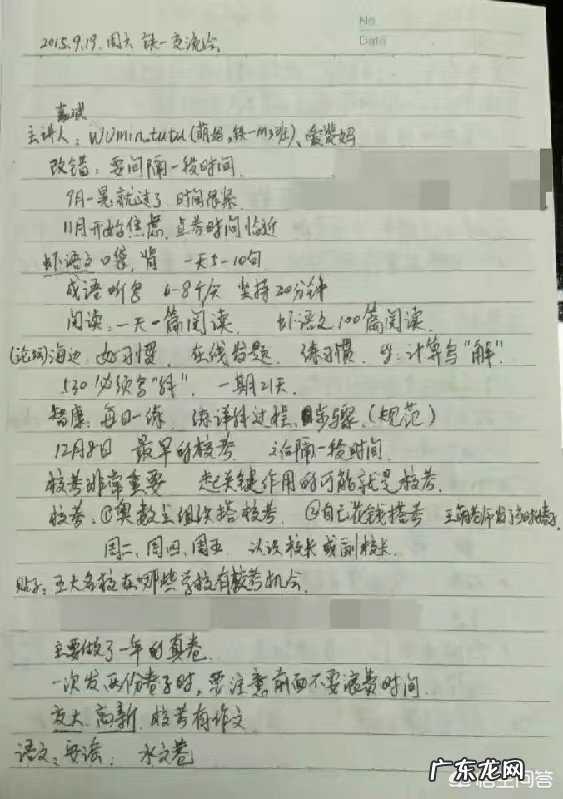 No
Date
2015.9.19. 周六 铁一交流会
主讲人: wumin.tutu (萌妈,铁一M3班)、爸妈
改错: 要间隔一段时间.
9月一晃就过了 时间很紧
11月开始焦虑, 且考时间临近
虾语文口袋, 背 一天5-10句
成语听写 6-8个/天 坚持20分钟
阅读: 一天一篇阅读. 虾语文100篇阅读.
(论坛)海边: 好习惯, 在线答题. 练习惯. 计算写"解".
530必须写"解". 一期21天.
智康: 每日一练 练详解过程、步骤.(规范)
12月8日 最早的校考 之后隔一段时间.
校考非常重要 起关键作用的可能就是校考.
校考: ①奥数 组织搭校考. ②自己花钱搭考
周二、周四、周五 认识校长或副校长.
贴子: 五大名校在哪些学校有校考机会.
主要做了一年的真卷.
一次发两份卷子时, 要注意前面不要浪费时间.
交大 高新 校考有作文
语文: 要 水文卷
广东龙网
悟空问答